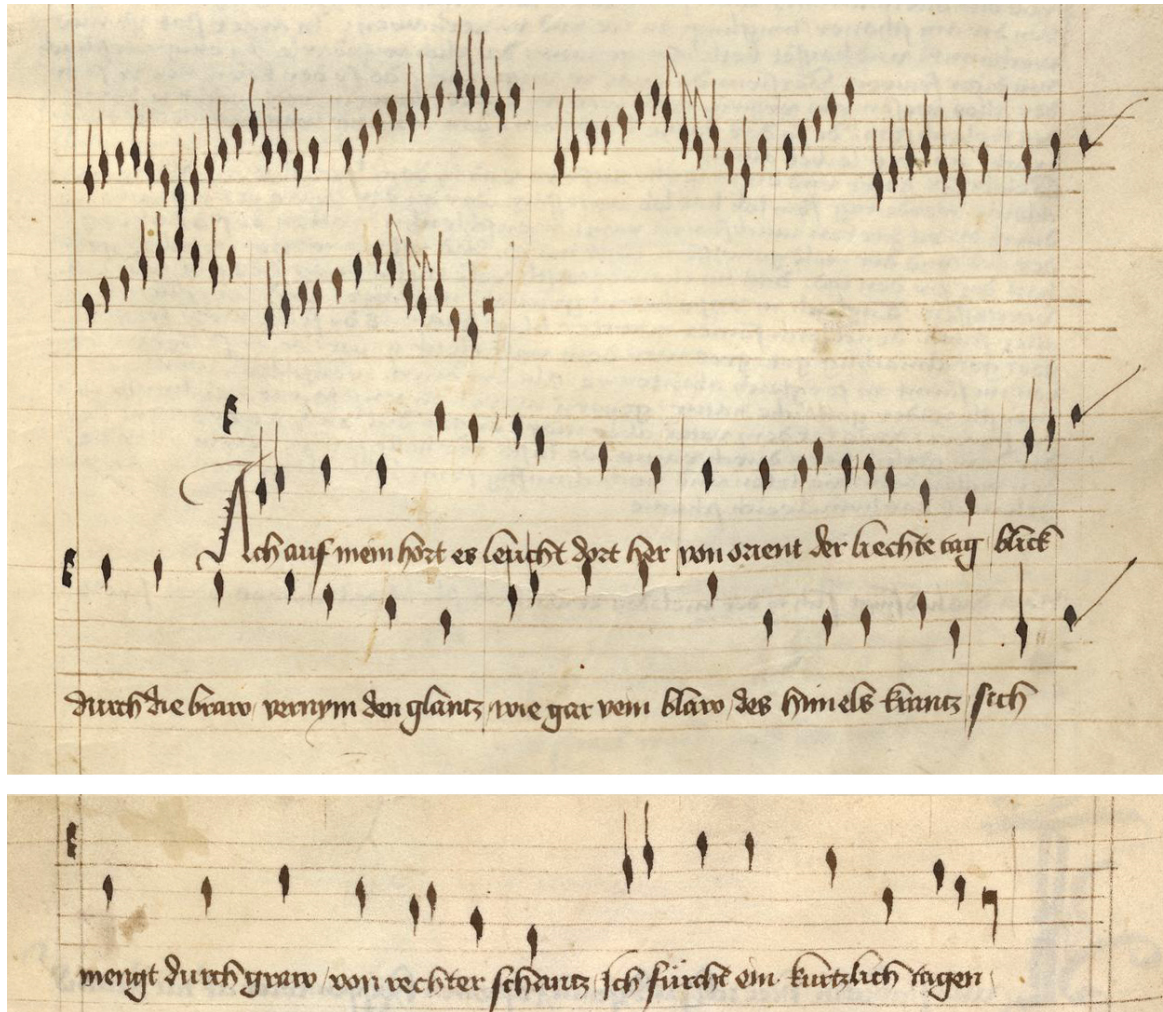 Ach auf mein hort es leucht dort her von orient der liechte tag blick
durch die braw / vernym den glantz / wie gar vein blaw / des himels krantz / sich
mengt durch graw / von rechter schantz / Ich fürcht ein kurtzlich tagen /